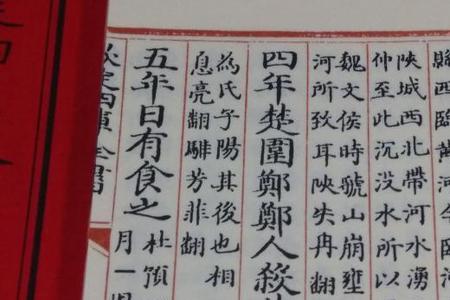 縣西臨黃河今臨河
陜城西北帶河水湧
仲至此沉没水所以
魏文侯時虢山崩壅
河所致耳陜失冉翻
四年楚圍鄭鄭人殺
為氏子陽其後也相
息亮翻騑芳菲翻
五年日有食之
杜預
月一
欽定四庫全書